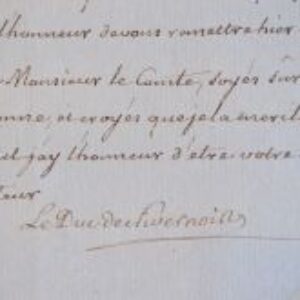 l'honneur de vous remettre hier
Monsieur le Comte, soyés sûr
et croyés que je la mérite
et j'ay l'honneur d'être votre
teur
Le Duc de Nivernois